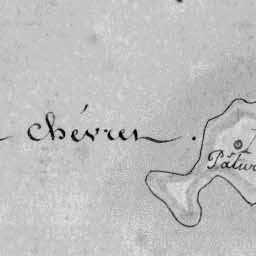 chévres.
Pâtur